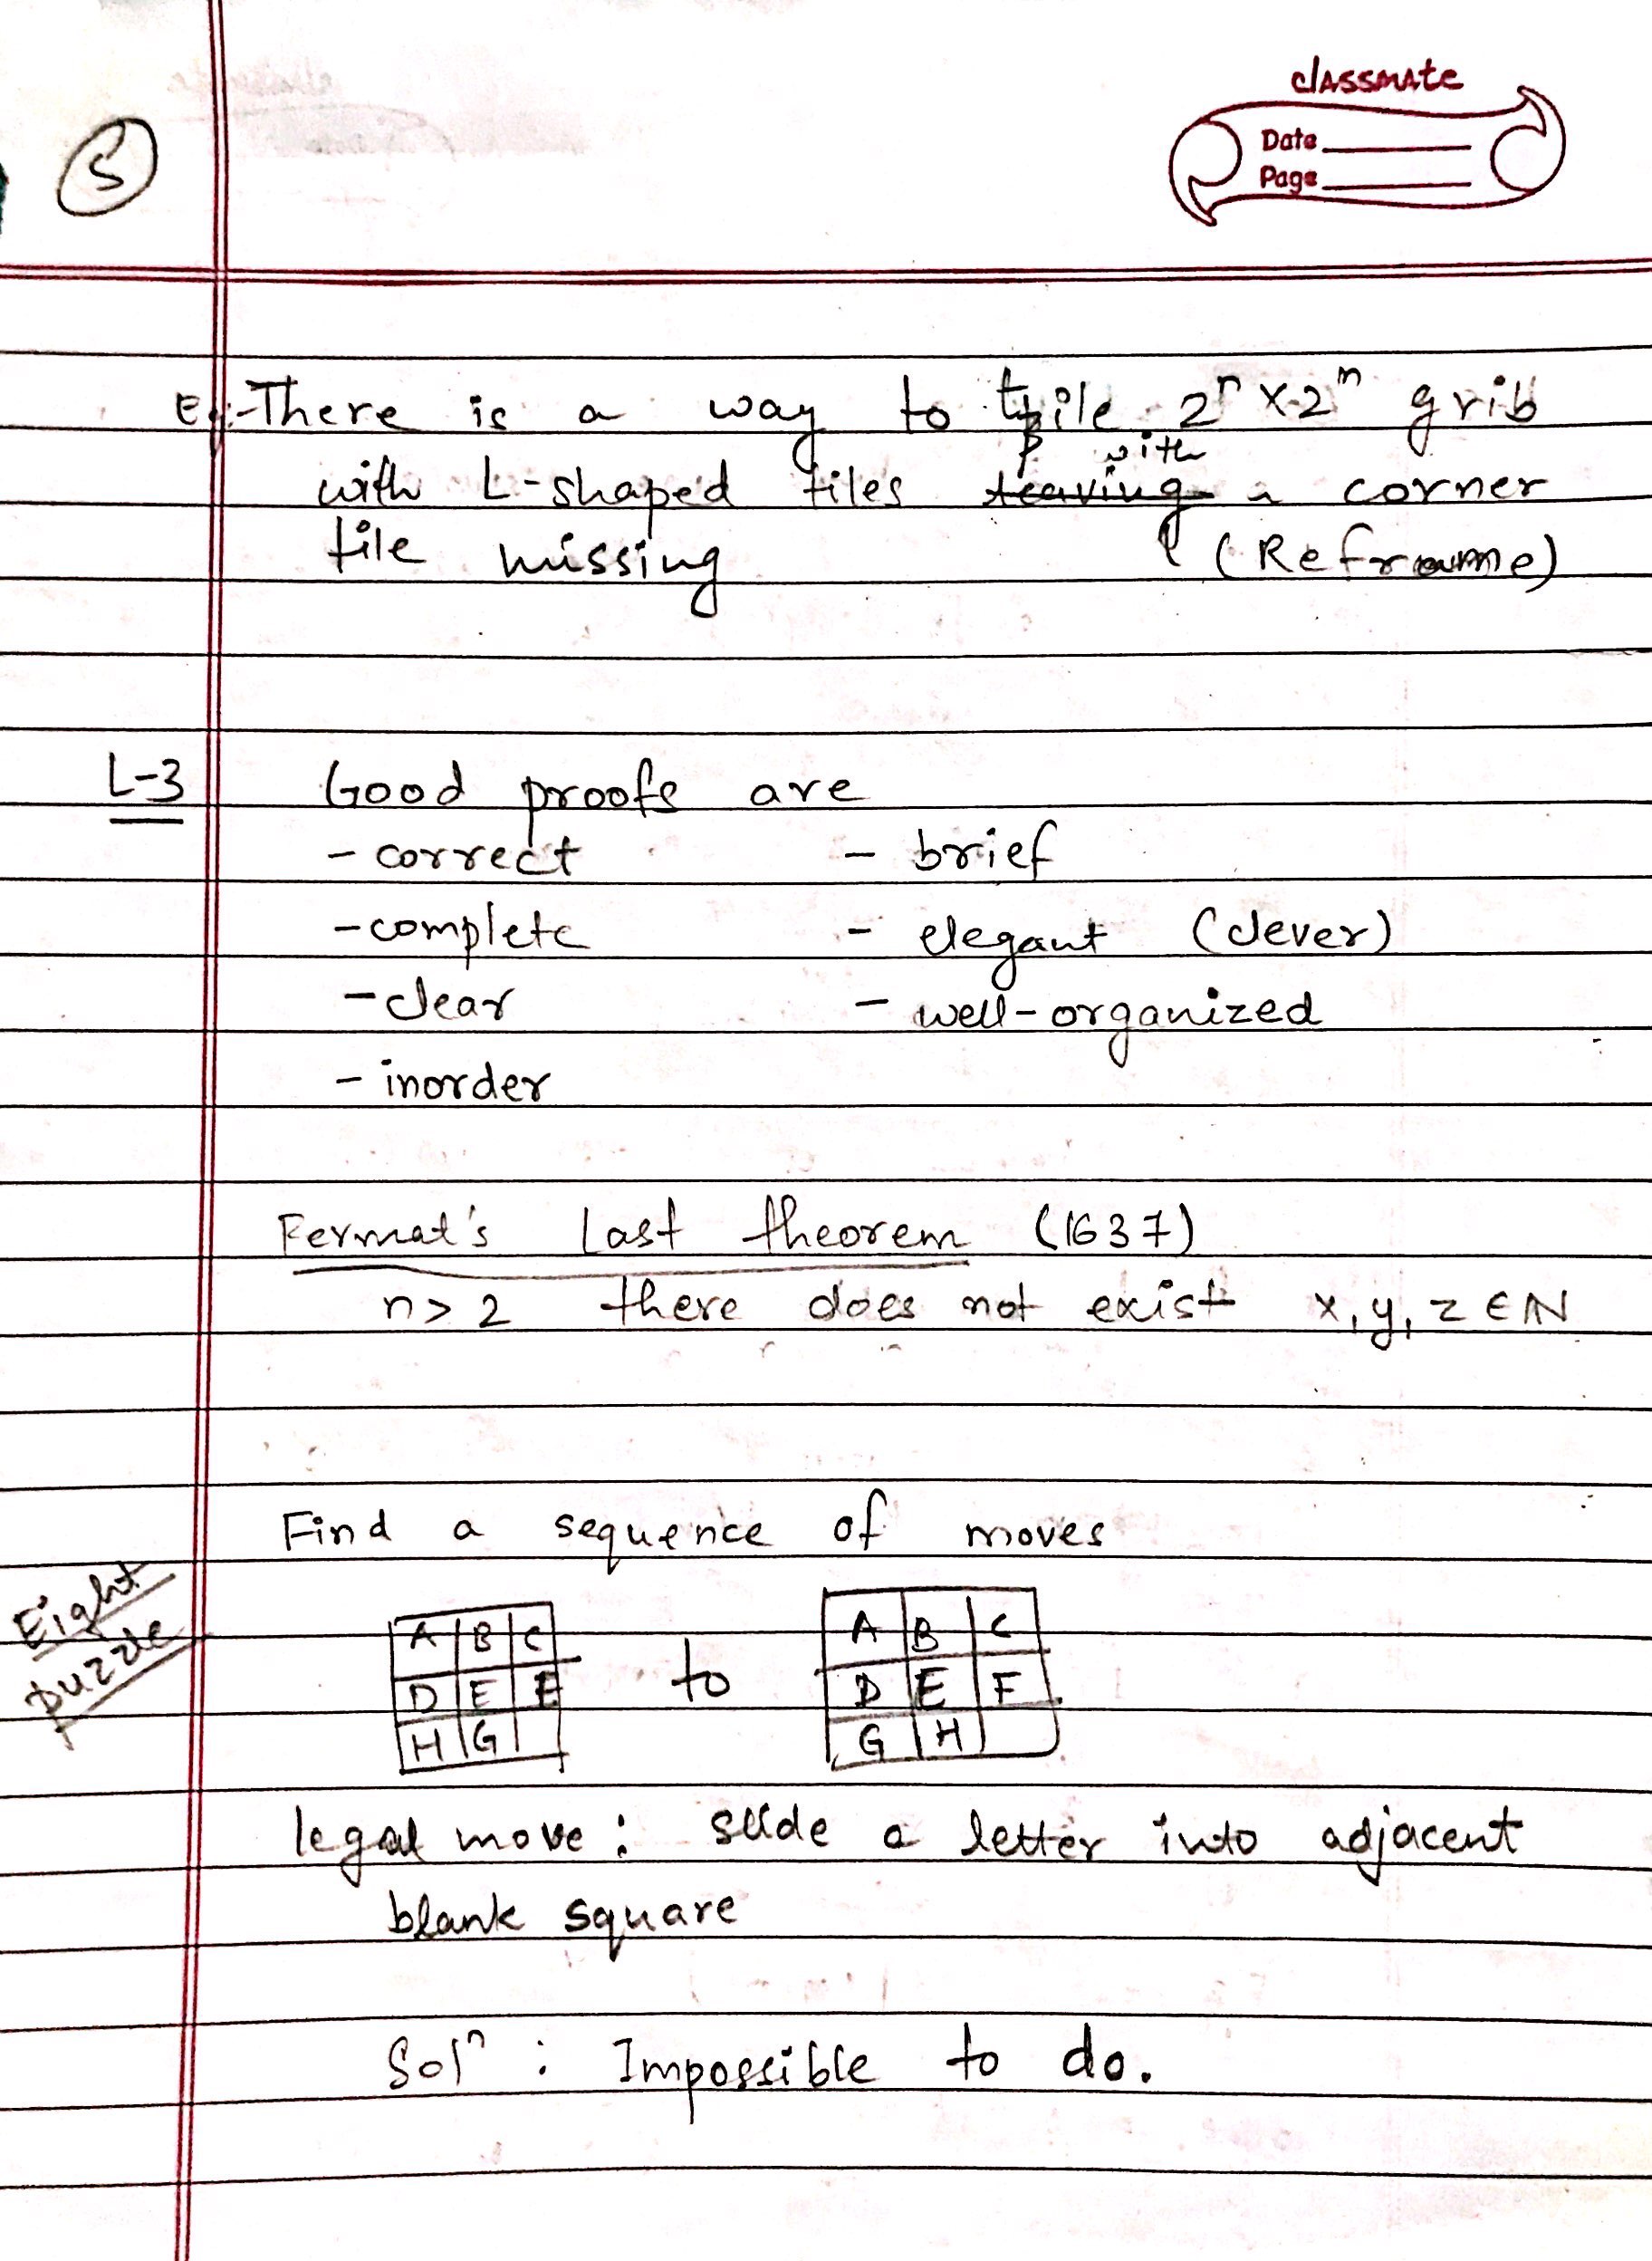 classmate
Date
Page
5
Eg:- There is a way to tile 2ⁿ x 2ⁿ grib
with L-shaped tiles with a corner
tile missing (Reframe)
L-3 Good proofs are
- correct - brief
- complete - elegant (clever)
- clear - well-organized
- inorder
Fermat's Last theorem (1637)
n > 2 there does not exist x, y, z ∈ N
Find a sequence of moves
Eight
puzzle
A B C A B C
D E F to D E F
H G G H
legal move : slide a letter into adjacent
blank square
Solⁿ : Impossible to do.